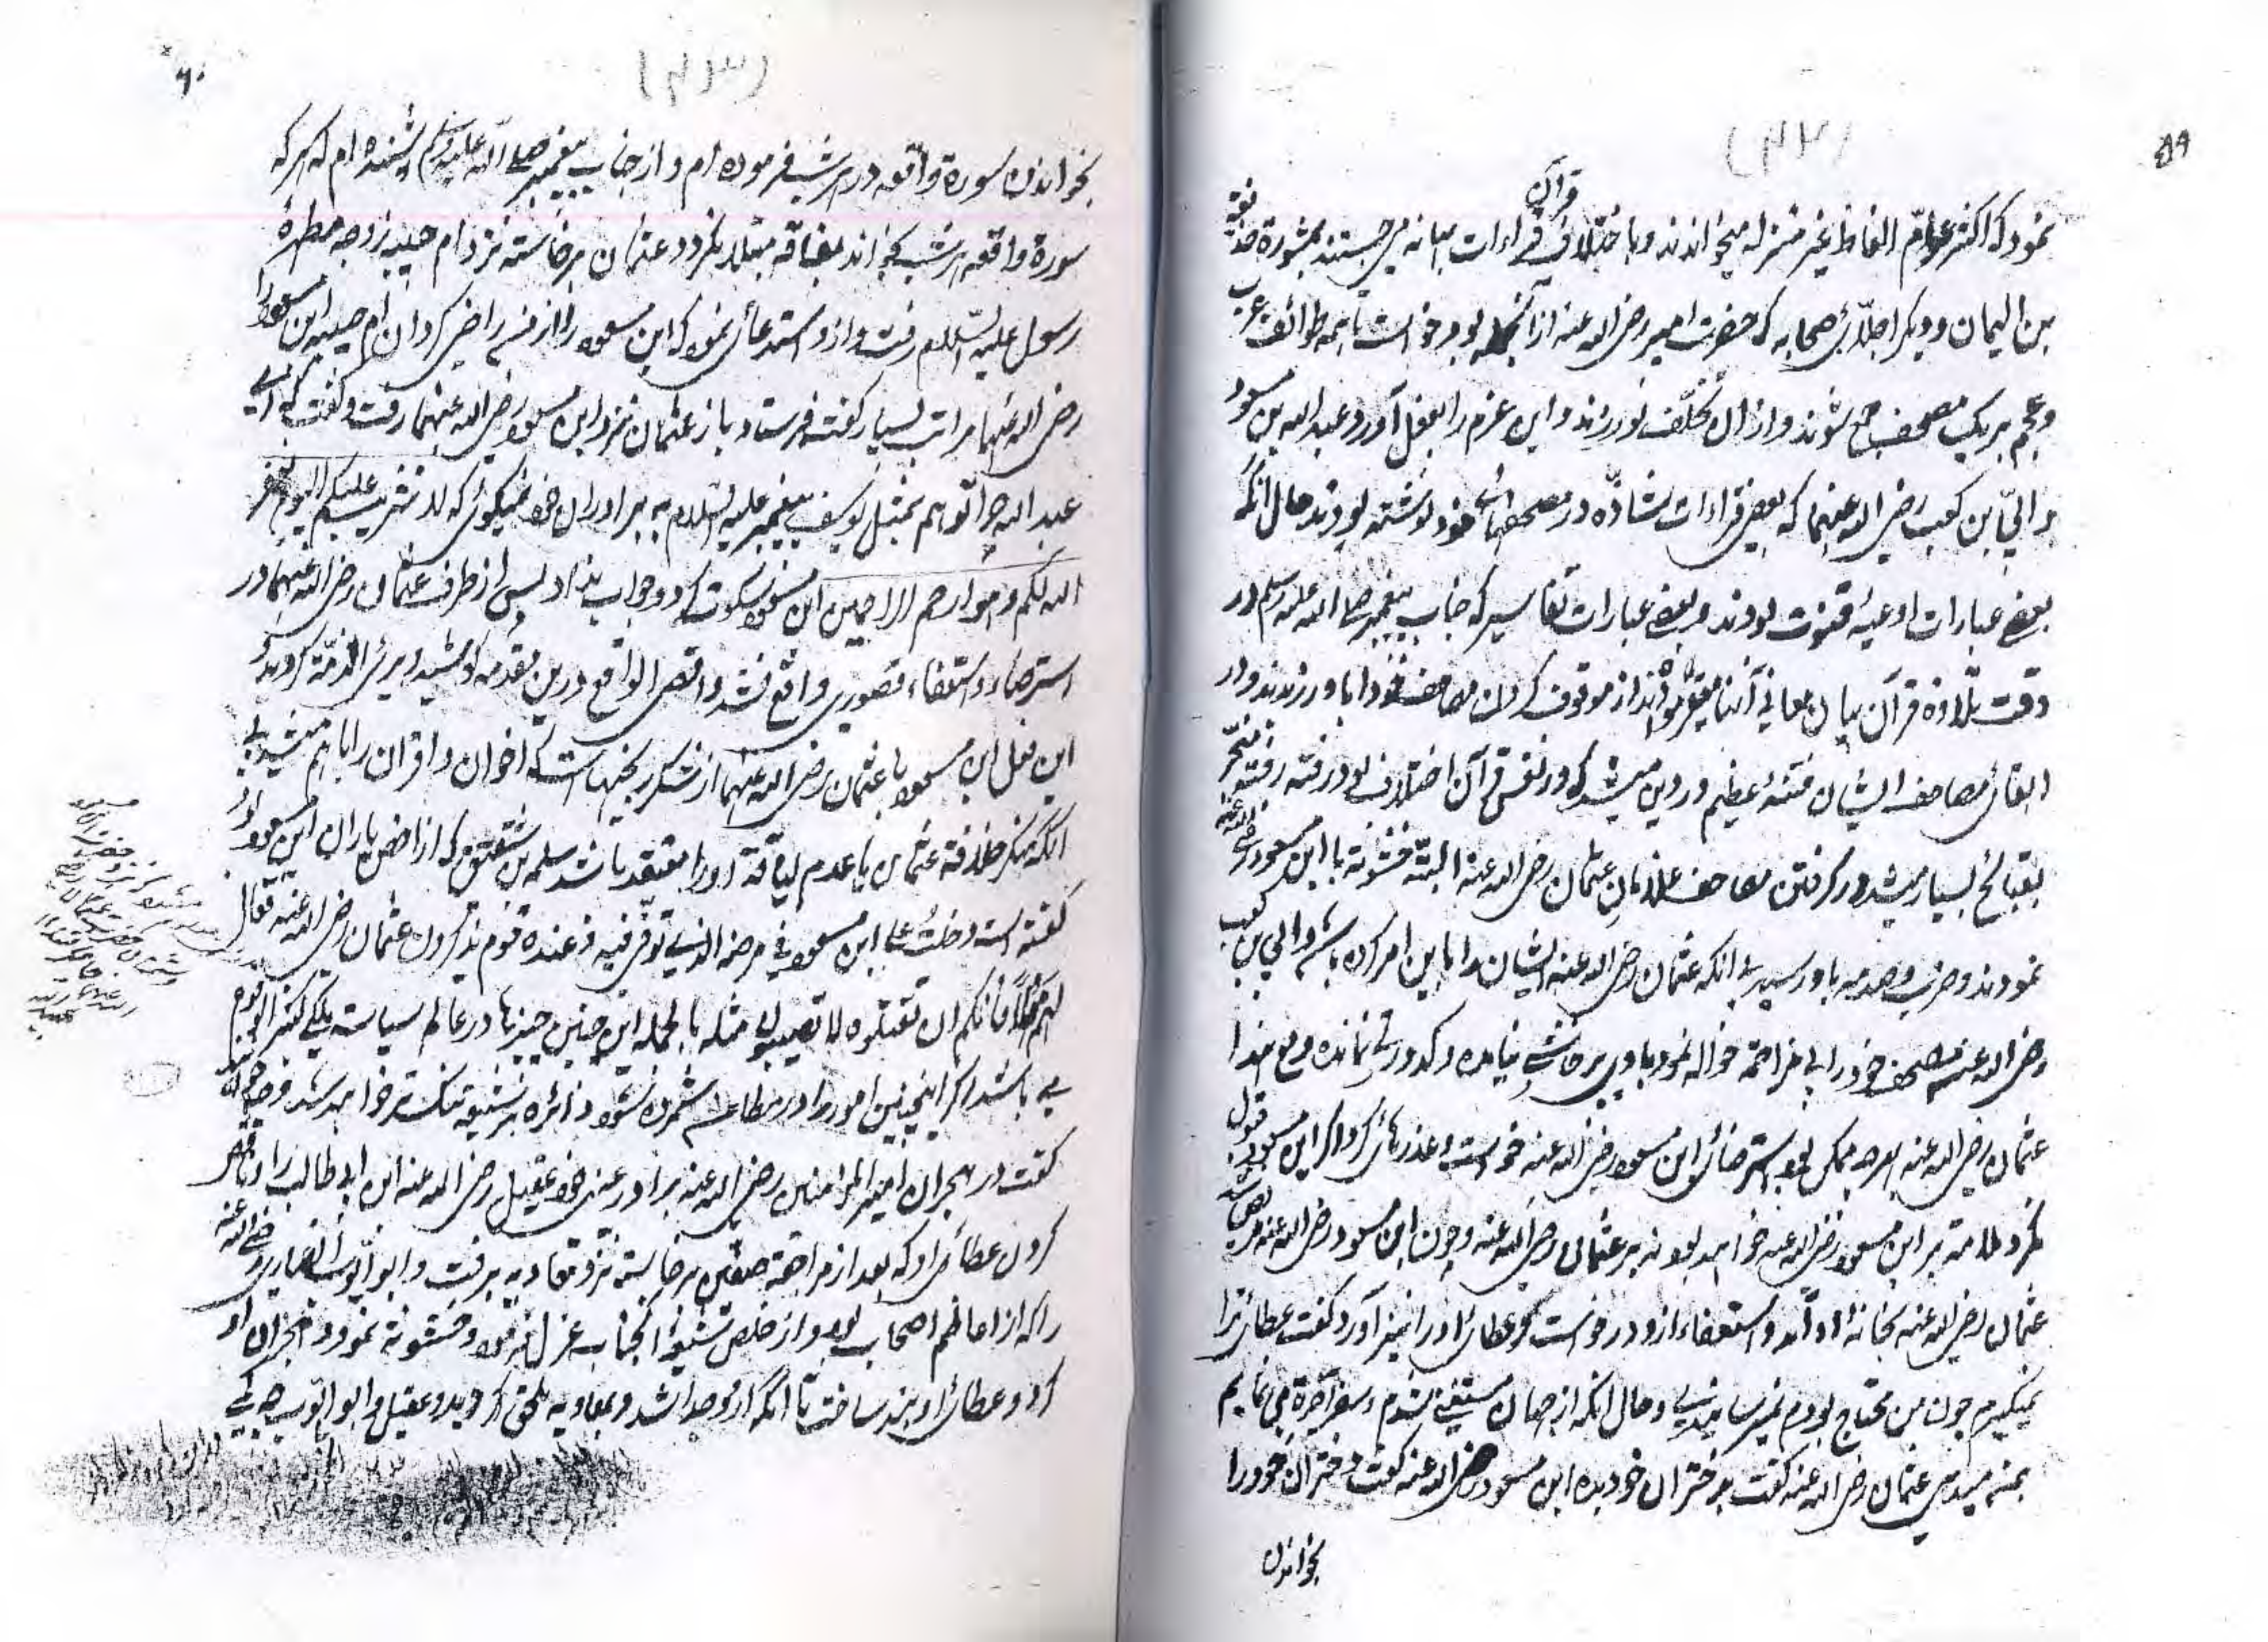 ۵۹
(۴۲)
نمود که اکثر عوام الفاظ غیر منزله میخواندند و باختلاف قراءات قرآن بهانه می جستند بمشوره حذیفة
بن الیمان و دیگر اجلّائی صحابه که حضرت امیر رضی الله عنه ازآنجمله بود خواست تا همه طوائف عرب
و عجم بر یک مصحف جمع شوند و ازان تخلّف نورزند و این عزم را بفعل آورد و عبد الله بن مسعود
و ابیّ بن کعب رضی الله عنهما که بعض قراءات شاذّه در مصحفهائ خود نوشته بودند حال آنکه
بعضے عبارات ادعیهٔ قنوت بودند و بعضے عبارات تفاسیر که جناب پیغمبر صلے الله علیه وسلم در
وقت تلاوة قرآن بیان معانی آنها میفرمودند از موقوف کردن مصاحف خود ابا ورزیدند و در
ابقائ مصاحف ایشان فتنهٔ عظیم در دین میشد که در نفس قرآن اختلاف بود رفته رفته منجر
بقبائح بسیار میشد در گرفتن مصاحف غلامان عثمان رضی الله عنه البته خشونة با ابن مسعود رضی الله عنه
نمودند و ضرب و صدمه باو رسید بے آنکه عثمان رضی الله عنه ایشان را باین امر کرده باشد و ابی بن کعب
رضی الله عنه مصحف خود را بے مزاحمة حواله نمود باوے پرخاشے نیامده و کدورتے نمانده و مع هذا
عثمان رضی الله عنه بهر چه ممکن بود استرضائ ابن مسعود رضی الله عنه خواست و عذرهائ کرد اگر ابن مسعود قبول
نکرد ملامة بر ابن مسعود رضی الله عنه خواهد بود نه بر عثمان رضی الله عنه و چون ابن مسعود رضی الله عنه مریض شد
عثمان رضی الله عنه بخانهٔ او آمد و استعفاء ازو درخواست کرد عطائ او را نیز آورد گفت عطائ ترا
نمیگیرم چون من محتاج بودم نمیرسانیدی و حال آنکه از جهان مستغنے شدم و سفر آخرة می نمایم
بمن میدهی عثمان رضی الله عنه گفت بدختران خود بده ابن مسعود رضی الله عنه گفت دختران خود را
بخواندن
۶۰
(۴۳)
بخواندن سورة واقعه در هر شب فرموده ام و از جناب پیغمبر صلے الله علیه وسلم شنیده ام که هر که
سورة واقعه هر شب بخواند بفاقه مبتلا نگردد عثمان برخاسته نزد ام حبیبه زوجه مطهرهٔ
رسول علیه السّلام رفت و ازو استدعائ نمود که ابن مسعود را از من راضی گردان ام حبیبه ابن مسعود را
رضی الله عنهما مراتب بسیار گفته فرستاد باز عثمان نزد ابن مسعود رضی الله عنهما رفت و گفت که اے
عبد الله چرا تو هم بمثل یوسف پیغمبر علیه السّلام به برادران خود نمیگوئی که لا تثریب علیکم الیوم یغفر
الله لکم و هو ارحم الراحمین ابن مسعود سکوت کرد و جواب نداد پس از طرف عثمان رضی الله عنهما در
استرضاء و استعفاء قصوری واقع نشد و اقصی الواقع درین مقدمه کوشید و برئ الذمّة گردید و
این فعل ابن مسعود با عثمان رضی الله عنهما از شکر رنجیهاست که اخوان و اقران را باهم میشود بے
آنکه منکر خلافة عثمان یا عدم لیاقة او را معتقد باشد سلمه بن شقیق که از اخص یاران ابن مسعود بود
گفته است دخلتُ علے ابن مسعود فی مرضه الذی توفّی فیه و عنده قوم یذکرون عثمان رضی الله عنه فقال
لهم مهلاً فانکم ان تقتلوه لا تصیبوا مثله بالجمله این چنین چیزها در عالم سیاسته ملکے کثیر الوقوع
مے باشد اگر اینچنین امور را در مطاعن شمرده شود دائره بر شیعه تنگ تر خواهد شد و چه خواهند
گفت در هجران امیر المؤمنین رضی الله عنه برادر عینی خود عقیل رضی الله عنه ابن ابی طالب را و ناقص
کردن عطائ او که بعد از مراجعة صفین برخاسته نزد معاویه برفت و ابو ایّوب انصاری رضی الله عنه
را که از اعاظم اصحاب بود و از خلص شیعهٔ آنجناب عزل نمود و خشونة نمود و هجران او
کرد و عطائ او بند ساخت تا آنکه ازو جدا شد و بمعاویه ملحق گردید و عقیل و ابو ایّوب چه کمی